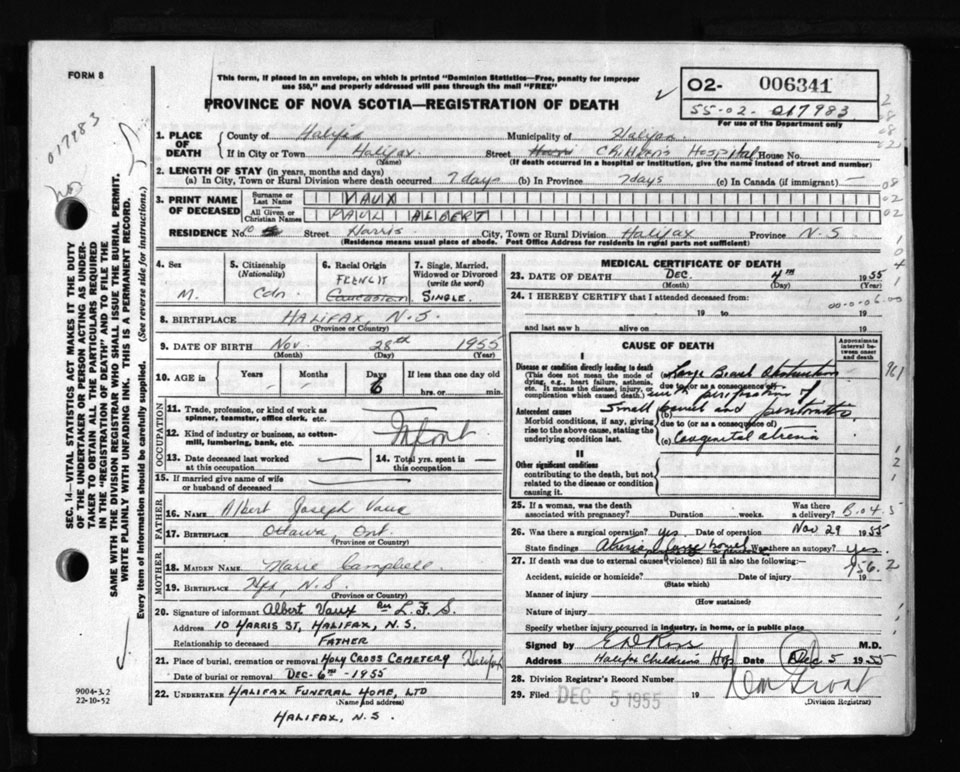 FORM 8
This form, if placed in an envelope, on which is printed "Dominion Statistics—Free, penalty for improper
use $50," and properly addressed will pass through the mail "FREE"
PROVINCE OF NOVA SCOTIA—REGISTRATION OF DEATH
02- 006341
55-02- 017983
For use of the Department only
017983
1. PLACE OF DEATH
County of Halifax Municipality of Halifax
If in City or Town Halifax Street Children's Hospital House No.
(Name) (If death occurred in a hospital or institution, give the name instead of street and number)
2. LENGTH OF STAY (in years, months and days)
(a) In City, Town or Rural Division where death occurred 7 days (b) In Province 7 days (c) In Canada (if immigrant) —
3. PRINT NAME OF DECEASED
Surname or Last Name VAUX
All Given or Christian Names PAUL ALBERT
RESIDENCE No. 10 Street Harris City, Town or Rural Division Halifax Province N.S.
(Residence means usual place of abode. Post Office Address for residents in rural parts not sufficient)
4. Sex M.
5. Citizenship (Nationality) Cdn
6. Racial Origin FRENCH Caucasian
7. Single, Married, Widowed or Divorced (write the word) SINGLE.
8. BIRTHPLACE HALIFAX, N.S.
(Province or Country)
9. DATE OF BIRTH Nov. 28th 1955
(Month) (Day) (Year)
10. AGE in Years - Months - Days 6 If less than one day old hrs. or min.
OCCUPATION
11. Trade, profession, or kind of work as spinner, teamster, office clerk, etc.
12. Kind of industry or business, as cotton-mill, lumbering, bank, etc. Infant
13. Date deceased last worked at this occupation — 14. Total yrs. spent in this occupation —
15. If married give name of wife or husband of deceased
FATHER
16. NAME Albert Joseph Vaux
17. BIRTHPLACE Ottawa, Ont
(Province or Country)
MOTHER
18. MAIDEN NAME Marie Campbell
19. BIRTHPLACE Hfx, N.S.
(Province or Country)
20. Signature of informant Albert Vaux Per L.F.S.
Address 10 HARRIS ST, HALIFAX, N.S.
Relationship to deceased FATHER
21. Place of burial, cremation or removal HOLY CROSS CEMETERY Halifax
Date of burial or removal DEC- 6TH -1955
22. UNDERTAKER HALIFAX FUNERAL HOME, LTD
(Name and address)
HALIFAX, N.S.
MEDICAL CERTIFICATE OF DEATH
23. DATE OF DEATH Dec. 4TH 1955
(Month) (Day) (Year)
24. I HEREBY CERTIFY that I attended deceased from:
19 to 19
and last saw h alive on 19
CAUSE OF DEATH
Approximate interval between onset and death
I
Disease or condition directly leading to death
(This does not mean the mode of dying, e.g., heart failure, asthenia, etc. It means the disease, injury, or complication which caused death.)
Large Bowel Obstruction
due to (or as a consequence of)
with perforation of
Antecedent causes
Morbid conditions, if any, giving rise to the above cause, stating the underlying condition last.
(b) small bowel and peritonitis
due to (or as a consequence of)
(c) Congenital atresia
II
Other significant conditions
contributing to the death, but not related to the disease or condition causing it.
25. If a woman, was the death associated with pregnancy? Duration weeks. Was there a delivery?
26. Was there a surgical operation? yes. Date of operation Nov 29 1955
State findings Was there an autopsy? yes.
27. If death was due to external causes (violence) fill in also the following:—
Accident, suicide or homicide? Date of injury 19
(State which)
Manner of injury
(How sustained)
Nature of injury
Specify whether injury occurred in industry, in home, or in public place
Signed by E D Ross M.D.
Address Halifax Childrens Hosp Date Dec 5 1955
28. Division Registrar's Record Number
29. Filed DEC 5 1955 19
(Division Registrar)
SEC. 14—VITAL STATISTICS ACT MAKES IT THE DUTY
OF THE UNDERTAKER OR PERSON ACTING AS UNDER-
TAKER TO OBTAIN ALL THE PARTICULARS REQUIRED
IN THE "REGISTRATION OF DEATH" AND TO FILE THE
SAME WITH THE DIVISION REGISTRAR WHO SHALL ISSUE THE BURIAL PERMIT.
WRITE PLAINLY WITH UNFADING INK. THIS IS A PERMANENT RECORD.
Every item of information should be carefully supplied. (See reverse side for instructions.)
9004-3.2
22-10-52